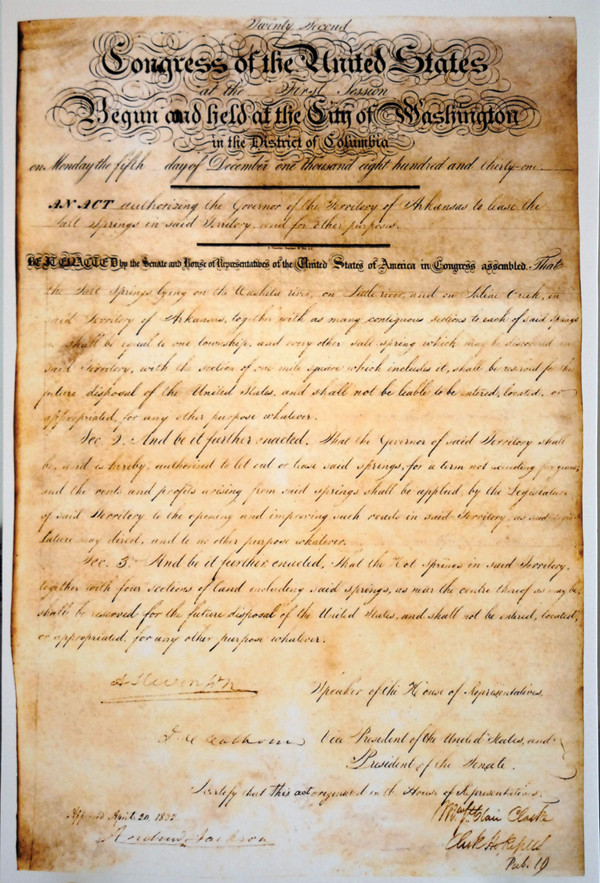 Twenty Second
Congress of the United States
at the First Session
Begun and held at the City of Washington
in the District of Columbia
on Monday the fifth day of December one thousand eight hundred and thirty-one.
AN ACT authorizing the Governor of the Territory of Arkansas to lease the
salt springs in said Territory, and for other purposes.
BE IT ENACTED by the Senate and House of Representatives of the United States of America in Congress assembled. That
the Salt Springs lying on the Washita river, on Little river, and on Saline Creek, in
said Territory of Arkansas, together with as many contiguous sections to each of said Springs
shall be equal to one township, and every other salt spring which may be discovered in
said Territory, with the section of one mile square which includes it, shall be reserved for the
future disposal of the United States, and shall not be leable to be entered, located, or
appropriated, for any other purpose whatever.
Sec 2. And be it further enacted, That the Governor of said Territory shall
be, and is hereby, authorised to let out or lease said springs, for a term not exceeding
and the rents and profits arising from said springs shall be applied, by the Legislature
of said Territory to the opening and improving such roads in said Territory, as said
lature may direct, and to no other purpose whatever.
Sec. 3. And be it further enacted, That the Hot Springs in said Territory,
together with four sections of land including said springs, as near the centre thereof as may be,
shall be reserved for the future disposal of the United States, and shall not be entered, located,
or appropriated, for any other purpose whatever.
A Stevenson
Speaker of the House of Representatives.
J. C. Calhoun
Vice President of the United States, and
President of the Senate.
I certify that this act originated in the House of Representatives.
Approved April 20. 1832.
Andrew Jackson
Clarke
Clerk Ho Reps
Pub. 19